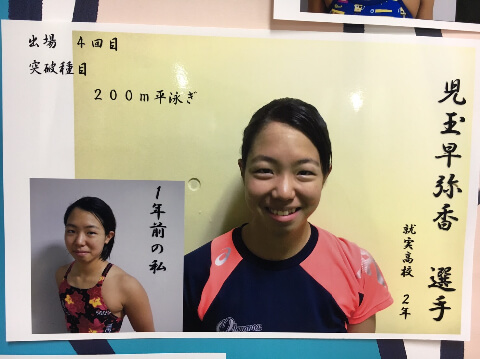 出場 4回目
突破種目
200m平泳ぎ
児玉早弥香 選手
就実高校 2年
1年前の私